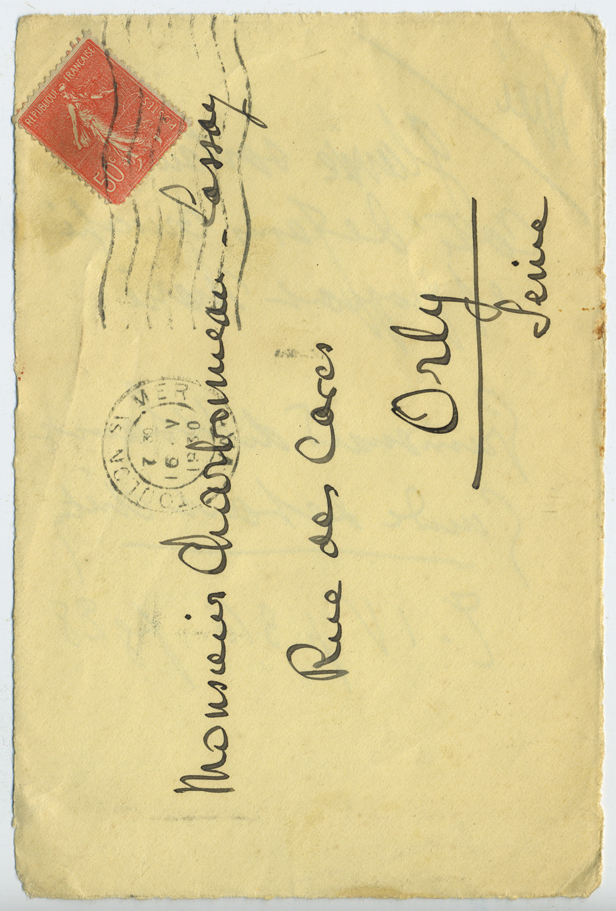 RÉPUBLIQUE FRANÇAISE
POSTES
50c
TOULON S/ MER
2 30
16 V
1930
Monsieur Charbonneau-Lassay
Rue des Cares
Orly
Seine